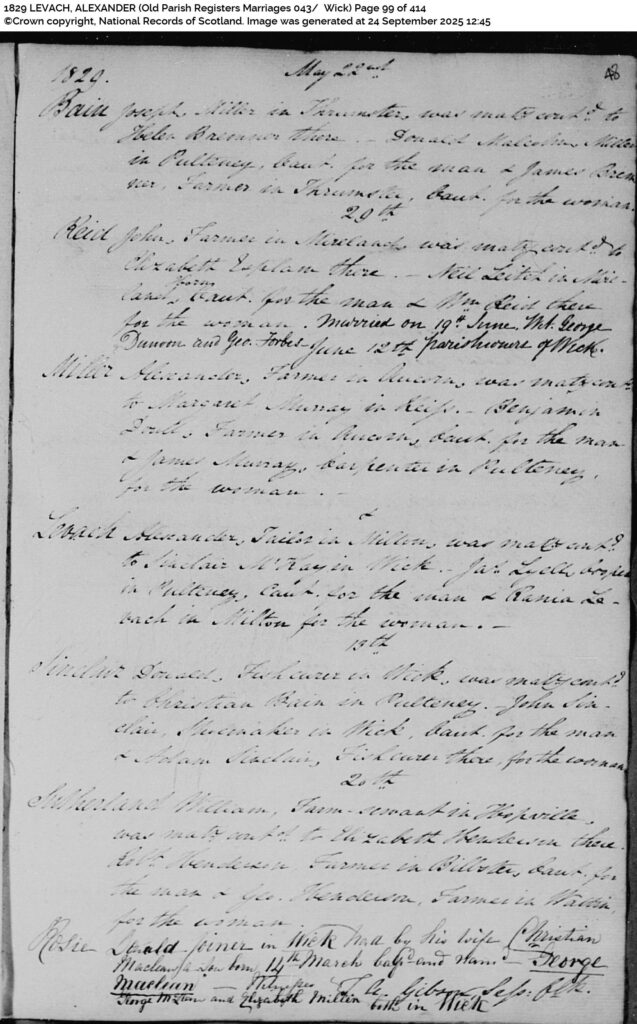 1829 LEVACH, ALEXANDER (Old Parish Registers Marriages 043/ Wick) Page 99 of 414
©Crown copyright, National Records of Scotland. Image was generated at 24 September 2025 12:45
48
1829. May 22nd
Bain Joseph, Miller in Thrumster, was maty contd. to
Helen Bremner there. - Donald Malcolm, Miller
in Pulteney, Caut. for the man & James Brem
ner, Farmer in Thrumster, Caut. for the woman.
29th
Reid John, Farmer in Mireland, was maty contd. to
Elizabeth there. - Neil Leitch in Mire-
land, Caut. for the man & Wm. Reid there
for the woman. Married on 19th June. Wit. George
Dunoon and Geo. Forbes parishioners of Wick.
June 12th
Miller Alexander, Farmer in was maty cont.
to Margaret Murray in Keiss. - Benjamin
Farmer in Caut. for the man
& James Murray, Carpenter in Pulteney,
for the woman. -
Levach Alexander, Tailor in Milton, was maty contd.
to Sinclair McKay in Wick. - Jas. Cooper
in Pulteney, Caut. for the man & Le-
vach in Milton for the woman. -
13th
Sinclair Donald, Fishcurer in Wick, was maty contd.
to Christian Bain in Pulteney. - John Sin-
clair, Shoemaker in Wick, Caut. for the man
& Adam Sinclair, Fishcurer there, for the woman
20th
Sutherland William, Farm-servant in
was maty contd. to Elizabeth Henderson there.
Robt. Henderson, Farmer in Bilbster, Caut. for
the man & Geo. Henderson, Farmer in
for the woman
Rosie Donald joiner in Wick had by his wife Christian
Maclean a son born 14th March bapd. and named George
Maclean - Witnesses
George McLean and Elizabeth Miller both in Wick
Gibson Sess. Clk.